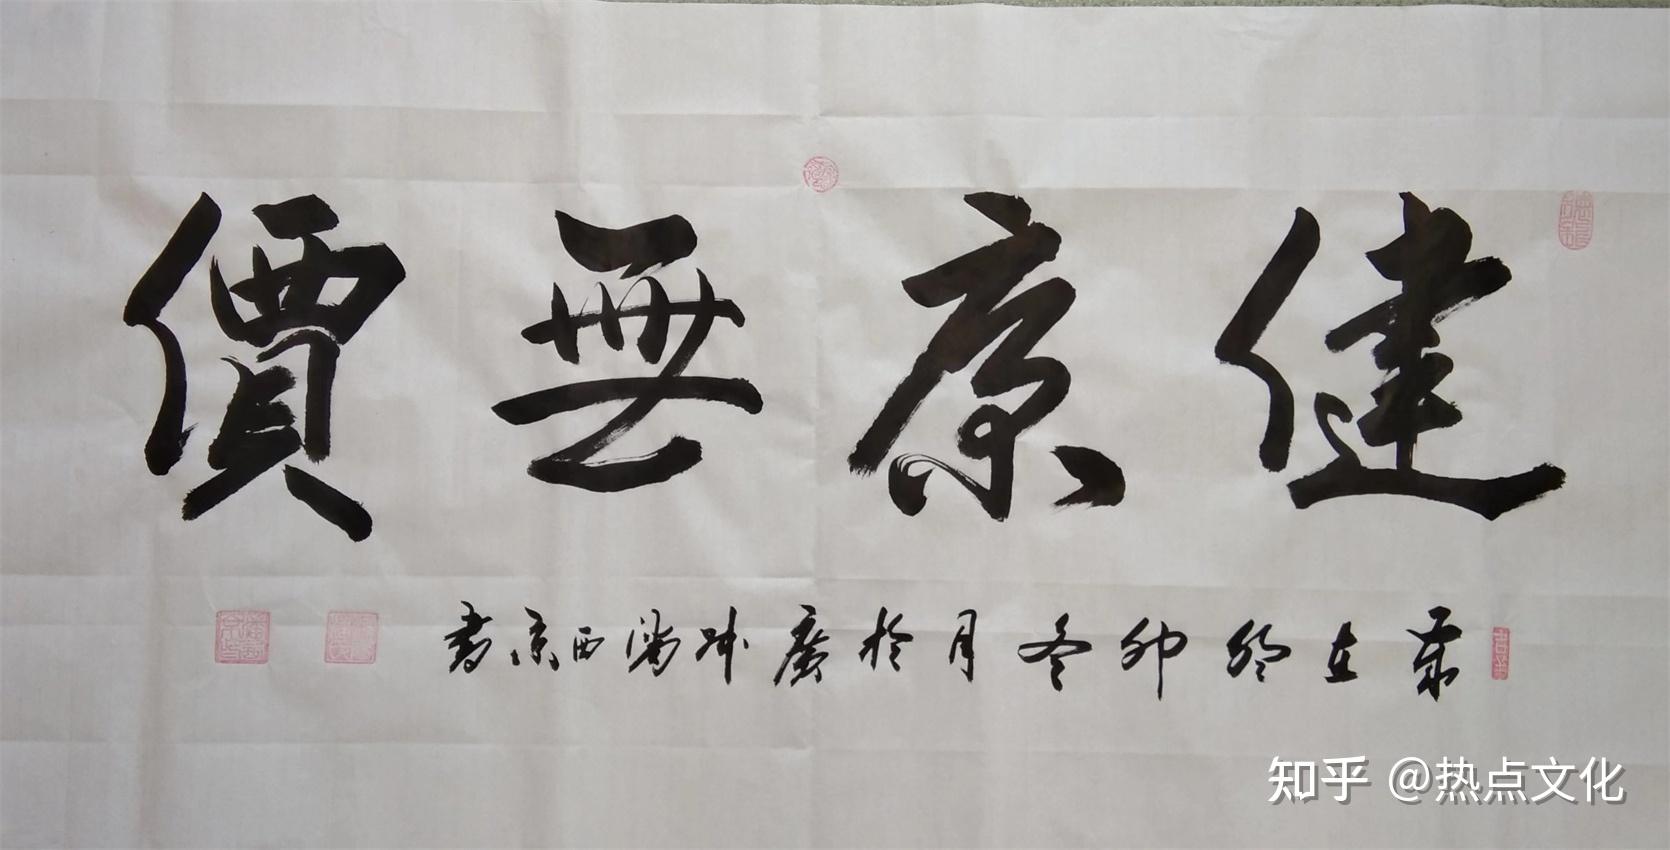 健康無價
歲在癸卯冬月於廣州潘西京書
知乎 @热点文化